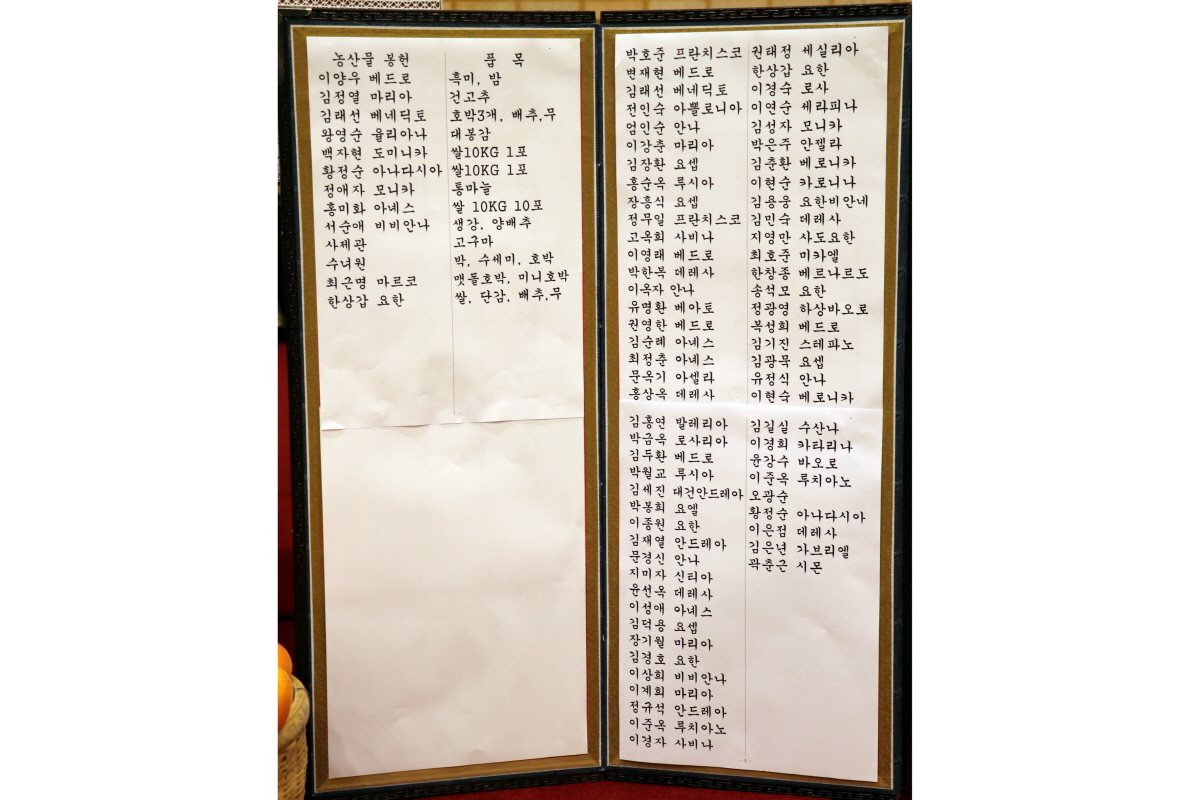 농산물 봉헌 품 목
이양우 베드로 흑미, 밤
김정열 마리아 건고추
김래선 베네딕토 호박3개, 배추,무
왕영순 율리아나 대봉감
백자현 도미니카 쌀10KG 1포
황정순 아나다시아 쌀10KG 1포
정애자 모니카 통마늘
홍미화 아녜스 쌀 10KG 10포
서순애 비비안나 생강, 양배추
사제관 고구마
수녀원 박, 수세미, 호박
최근명 마르코 맷돌호박, 미니호박
한상갑 요한 쌀, 단감, 배추,무
박호준 프란치스코 권태정 세실리아
변재현 베드로 한상갑 요한
김래선 베네딕토 이경숙 로사
전인숙 아뽈로니아 이연순 세라피나
엄인순 안나 김성자 모니카
이강춘 마리아 박은주 안젤라
김장환 요셉 김춘환 베로니카
홍순옥 루시아 이현순 카로니나
장흥식 요셉 김용웅 요한비안네
정무일 프란치스코 김민숙 데레사
고옥희 사비나 지영만 사도요한
이영래 베드로 최호준 미카엘
박한복 데레사 한창종 베르나르도
이옥자 안나 송석모 요한
유명환 베아토 정광영 하상바오로
권영한 베드로 복성희 베드로
김순례 아녜스 김기진 스테파노
최정춘 아녜스 김광묵 요셉
문옥기 아셀라 유정식 안나
홍상옥 데레사 이현숙 베로니카
김홍연 발레리아 김길실 수산나
박금옥 로사리아 이경희 카타리나
김두환 베드로 윤강수 바오로
박월교 루시아 이준옥 루치아노
김세진 대건안드레아 오광순
박봉희 요엘 황정순 아나다시아
이종원 요한 이은점 데레사
김재열 안드레아 김은년 가브리엘
문경신 안나 곽춘근 시몬
지미자 신티아
윤선옥 데레사
이성애 아녜스
김덕용 요셉
장기월 마리아
김경호 요한
이상희 비비안나
이계희 마리아
정규석 안드레아
이준옥 루치아노
이경자 사비나